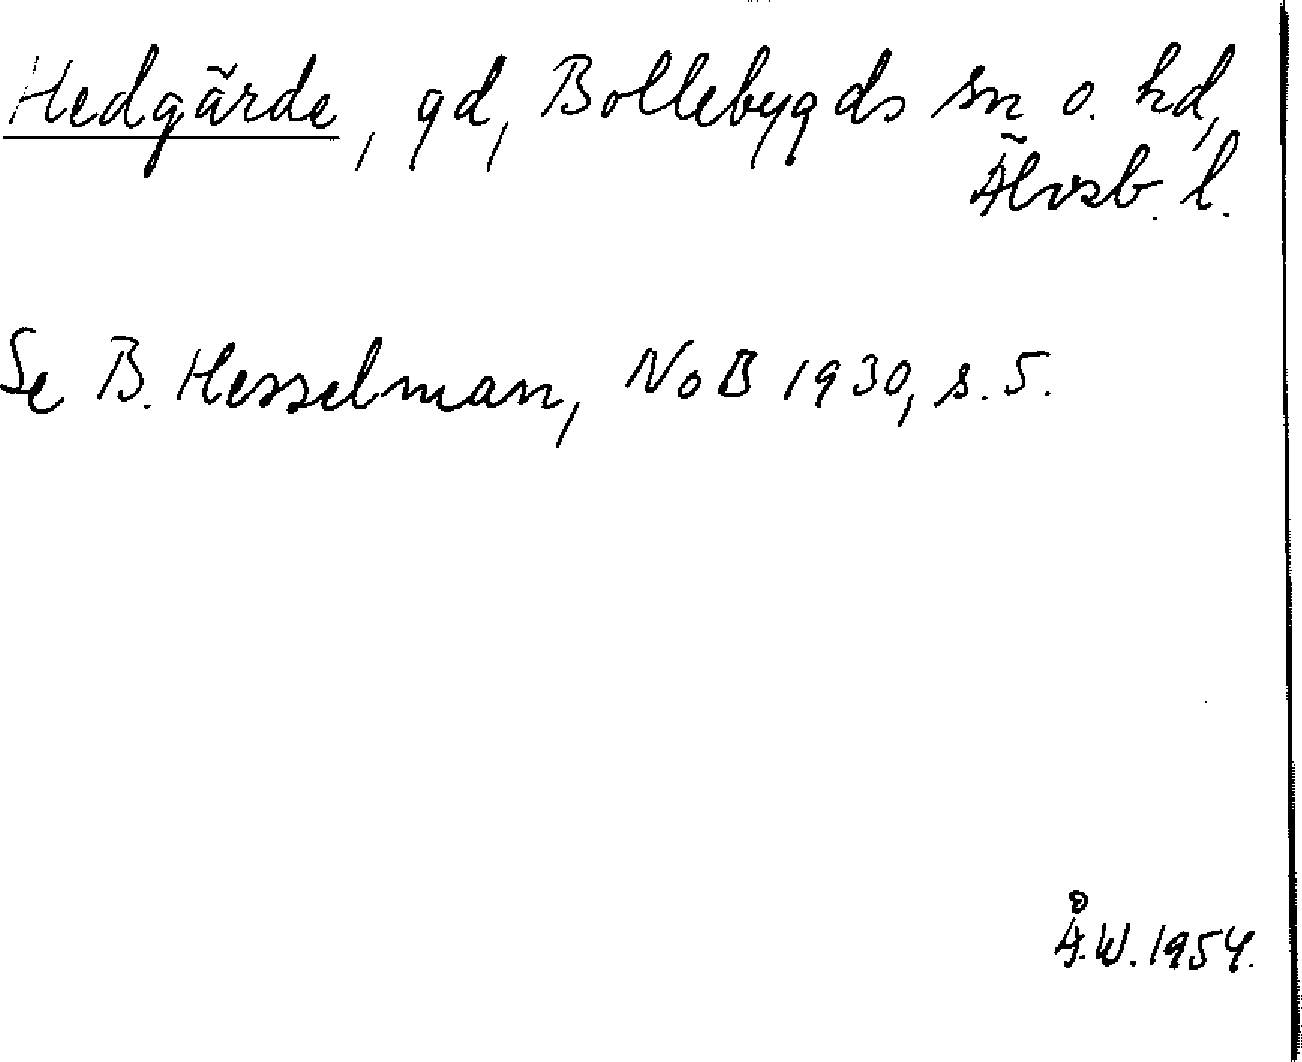 Hedgärde, gd, Bollebygds sn o. hd,
Älvsb. l.
Se B. Hesselman, NoB 1930, s. 5.
Å.W. 1954.